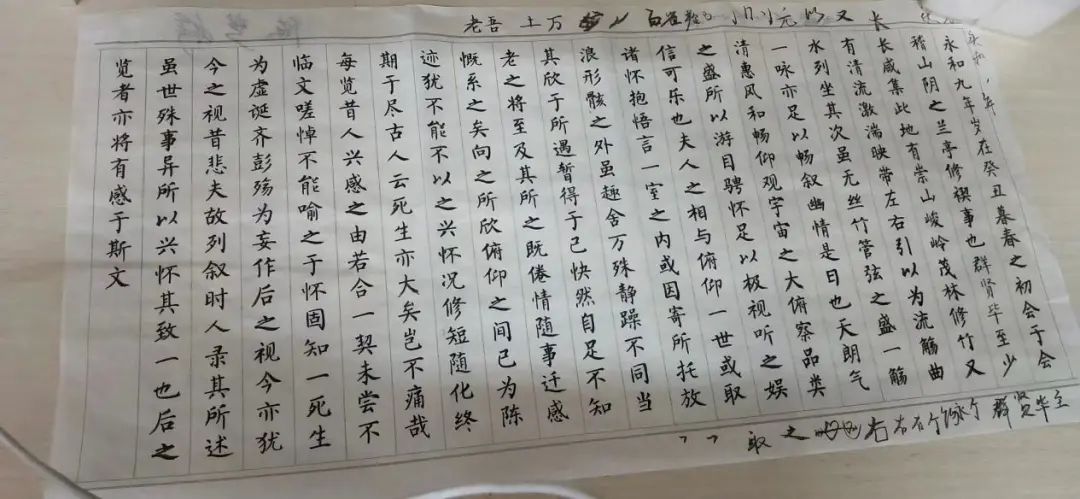 老吾 土万
元以又 长
永和九年岁在癸丑暮春之初会于会
稽山阴之兰亭修禊事也群贤毕至少
长咸集此地有崇山峻岭茂林修竹又
有清流激湍映带左右引以为流觞曲
水列坐其次虽无丝竹管弦之盛一觞
一咏亦足以畅叙幽情是日也天朗气
清惠风和畅仰观宇宙之大俯察品类
之盛所以游目骋怀足以极视听之娱
信可乐也夫人之相与俯仰一世或取
诸怀抱悟言一室之内或因寄所托放
浪形骸之外虽趣舍万殊静躁不同当
其欣于所遇暂得于己快然自足不知
老之将至及其所之既倦情随事迁感
慨系之矣向之所欣俯仰之间已为陈
迹犹不能不以之兴怀况修短随化终
期于尽古人云死生亦大矣岂不痛哉
每览昔人兴感之由若合一契未尝不
临文嗟悼不能喻之于怀固知一死生
为虚诞齐彭殇为妄作后之视今亦犹
今之视昔悲夫故列叙时人录其所述
虽世殊事异所以兴怀其致一也后之
览者亦将有感于斯文
取之 右 群贤毕至